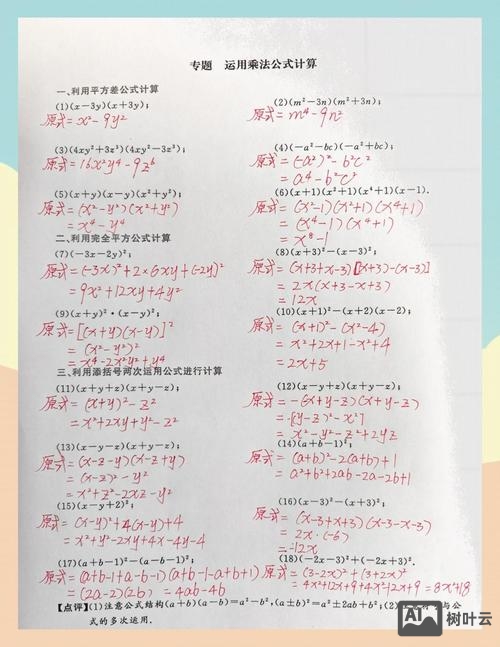 专题 运用乘法公式计算
一、利用平方差公式计算
(1)(x-3y)(x+3y);
原式=x²-9y²
(2)(m²-3n)(m²+3n);
原式=m⁴-9n²
(3)(4xy²+3z³)(4xy²-3z³);
原式=16x²y⁴-9z⁶
(4)(-a²-bc)(-a²+bc);
原式=(-a²)²-b²c²
=a⁴-b²c²
(5)(x+y)(x-y)(x²+y²);
原式=(x²-y²)(x²+y²)
=x⁴-y⁴
(6)(x+1)(x²+1)(x⁴+1)(x-1).
原式=(x²-1)(x²+1)(x⁴+1)
=(x⁴-1)(x⁴+1)
=x⁸-1
二、利用完全平方公式计算
(7)(-3x-2y)²;
原式=(-3x)²+2×6xy+(-2y)²
=9x²+12xy+4y²
(8)(x+3)²-(x-3)²;
原式=(x+3+x-3)[(x+3)-(x-3)]
=2x(x+3-x+3)
=12x
(9)(x+y)²·(x-y)²;
原式=[(x+y)(x-y)]²
=(x²-y²)²
=x⁴-2x²y²+y⁴
(10)(x+1)²-(x+2)(x-2);
原式=(x+1)²-(x²-4)
=x²+2x+1-x²+4
=2x+5
三、利用添括号两次运用公式进行计算
(11)(x+y+z)(x+y-z);
原式=(x+y)²-z²
=x²+2xy+y²-z²
(12)(x-y+z)(x+y-z);
原式=-(x+y-z)(x+y-z)
=-[(y-z)²-x²]
=x²-y²-z²+2yz
(13)(x-y-z)(x+y-z);
原式=(x-z-y)(x-z+y)
=(x-z)²-y²
=x²+z²-2xz-y²
(14)(a+b-1)²;
原式=(a+b)²-2(a+b)+1
=a²+b²+2ab-2a-2b+1
(15)(x-y+2)²;
原式=(x-y)²+4(x-y)+4
=x²+y²-2xy+4x-4y+4
(16)(x-3)²-(x+3)²;
原式=(x-3+x+3)(x-3-x-3)
=2x·(-6)
=-12x
(17)(a+b-1)²-(a-b-1)²;
原式=(a+b-1+a-b-1)(a+b-1-a+b+1)
=(2a-2)(2b)=4ab-4b
(18)(-2x-3)²+(-2x+3)².
原式=(3-2x)²+(3+2x)²
=4x²+12x+9+4x²-12x+9=8x²+18
【点评】(1)注意公式结构(a+b)(a-b)=a²-b²,(a±b)²=a²±2ab+b²;(2)与公
式的多次运用.
AI
树叶云